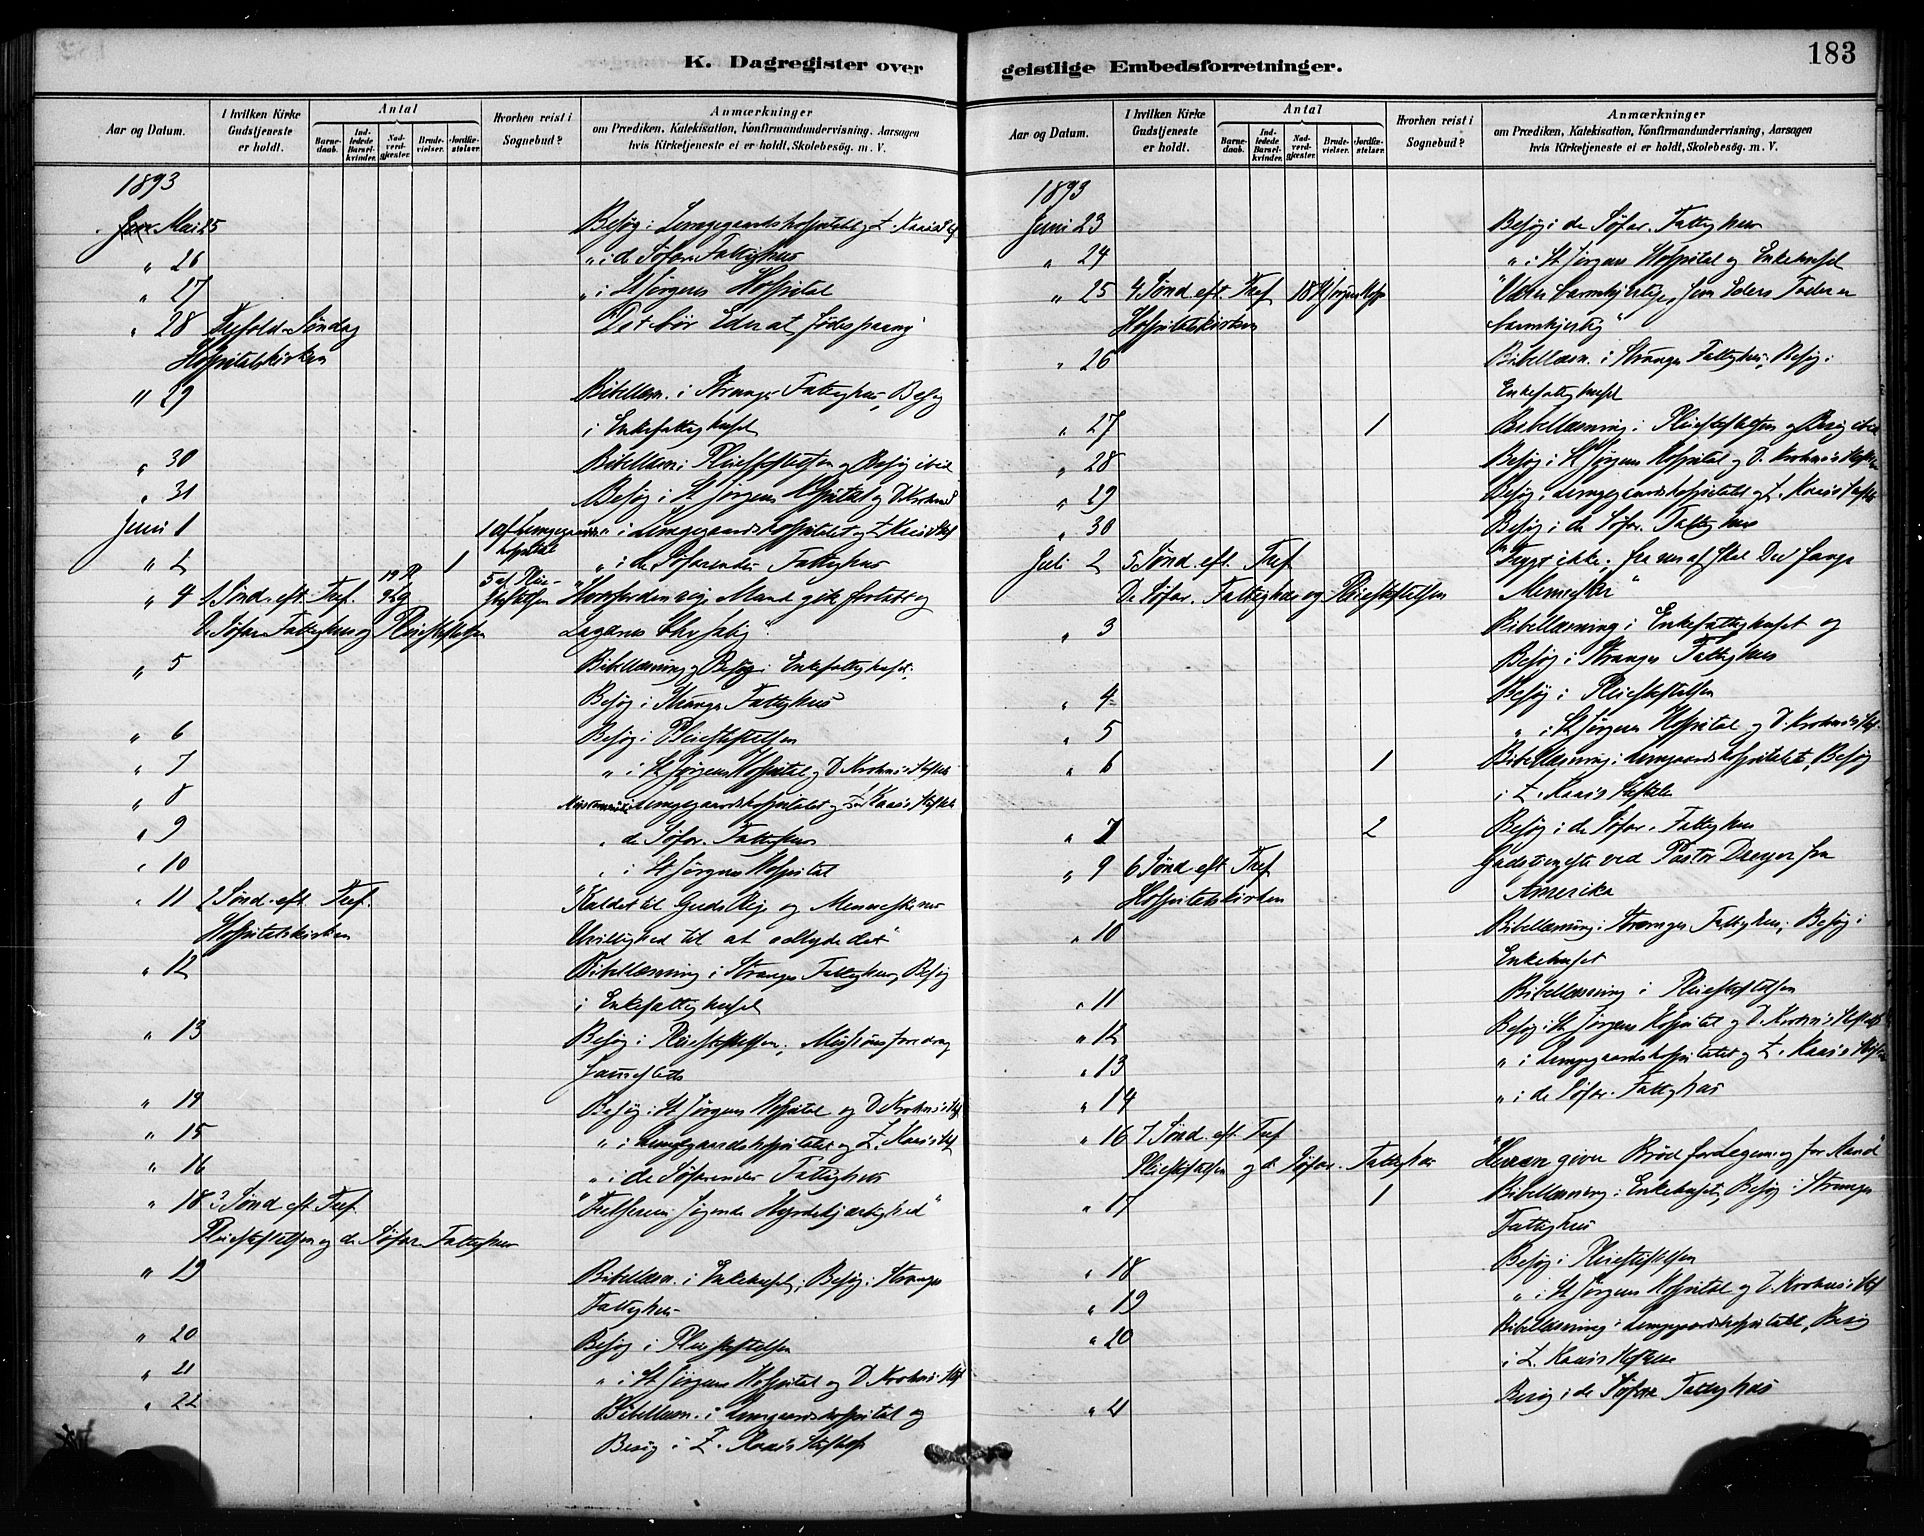 183
K. Dagregister over geistlige Embedsforretninger.
Aar og Datum.
I hvilken Kirke Gudstjeneste er holdt.
Antal
Barne-daab.
Ind-ledede Barsel-kvinder.
Nad-verd-gjæster.
Brude-vielser.
Jordfæ-stelser.
Hvorhen reist i Sognebud?
Anmærkninger
om Prædiken, Katekisation, Konfirmandundervisning, Aarsagen
hvis Kirketjeneste ei er holdt, Skolebesøg. m. V.
1893
Mai 25 Besøg i Lungegaardshospitalet og Z. Kaaes Stif
" 26 " i de Søfar. Fattighus
" 27 " i St Jørgens Hospital
" 28 Trefold. Søndag Det bør Eder at fødes paany
Hospitalskirken
" 29 Bibellæsn. i Stranges Fattighus, Besøg
i Enkefattighuset
" 30 Bibellæsn. i Pleiestiftelsen og Besøg ibid
" 31 Besøg i St Jørgens Hospital og D. Krohns
Juni 1 1 af Lungegaards " i Lungegaardshospitalet og Z Kaaes Stif
hospital
" 2 1 " i de Søfarendes Fattighus
" 4 1 Sønd. eft. Tref. 5 af Pleie- Hvorfor den rige Mand gik fortabt og
stiftelsen
De Søfar. Fattighus og Pleiestiftelsen Lazarus blev salig".
" 5 Bibellæsning og Besøg i Enkefattighuset;
Besøg i Stranges Fattighus
" 6 Besøg i Pleiestiftelsen
" 7 " i St Jørgens Hospital og D. Krohns Stiftelse
" 8 Lungegaardshospitalet og Z. Kaaes Stiftelse
" 9 " de Søfar. Fattighus
" 10 " i St Jørgens Hospital
" 11 2 Sønd. eft. Tref. "Kaldet til Guds Rige og Menneskenes
Hospitalskirken Uvillighed til at adlyde det"
" 12 Bibellæsning i Stranges Fattighus, Besøg
i Enkefattighuset
" 13 Besøg i Pleiestiftelsen; Missionsforedrag
sammesteds
" 14 Besøg i St Jørgens Hospital og D. Krohns Stif
" 15 " i Lungegaardshospitalet og Z. Kaaes Stif
" 16 " i de Søfarendes Fattighus
" 18 3 Sønd eft Tref "Frelserens søgende Hyrdekjærlighed"
Pleiestiftelsen og de Søfar. Fattighus
" 19 Bibellæsn. i Enkehuset; Besøg i Stranges
Fattighus
" 20 Besøg i Pleiestiftelsen
" 21 " i St Jørgens Hospital og D Krohns Stif
" 22 Bibellæsn. i Lungegaardshospital og
Besøg i Z. Kaaes Stiftelse
Aar og Datum.
I hvilken Kirke Gudstjeneste er holdt.
Antal
Barne-daab.
Ind-ledede Barsel-kvinder.
Nad-verd-gjæster.
Brude-vielser.
Jordfæ-stelser.
Hvorhen reist i Sognebud?
Anmærkninger
om Prædiken, Katekisation, Konfirmandundervisning, Aarsagen
hvis Kirketjeneste ei er holdt, Skolebesøg. m. V.
1893
Juni 23 Besøg i de Søfar. Fattighus
" 24 " i St Jørgens Hospital og Enkehuset
" 25 4 Sønd. eft. Tref "Værer barmhjertige, som Eders Fader er
Hospitalskirken barmhjertig"
" 26 Bibellæsn. i Stranges Fattighus, Besøg i
Enkefattighuset
" 27 1 Bibellæsning i Pleiestiftelsen og Besøg ibid
" 28 Besøg i St Jørgens Hospital og D. Krohns Stiftelse
" 29 Besøg i Lungegaardshospitalet og Z. Kaaes Stiftelse
" 30 Besøg i de Søfar. Fattighus
Juli 2 5 Sønd. eft. Tref "Frygt ikke; fra nu af skal Du fange
De Søfar. Fattighus og Pleiestiftelsen Mennesker"
" 3 Bibellæsning i Enkefattighuset og
Besøg i Stranges Fattighus
" 4 Besøg i Pleiestiftelsen
" 5 " i St Jørgens Hospital og D. Krohns Stif.
" 6 1 Bibellæsning i Lungegaardshospitalet, Besøg
i Z. Kaaes Stiftelse
" 7 2 Besøg i de Søfar. Fattighus
" 9 6 Sønd eft Tref Gudstjeneste ved Pastor Dreyer fra
Hospitalskirken Amerika
" 10 Bibellæsning i Stranges Fattighus; Besøg i
Enkehuset
" 11 Bibellæsning i Pleiestiftelsen
" 12 Besøg i St. Jørgens Hospital og D. Krohns Stiftelse
" 13 " i Lungegaardshospitalet og Z. Kaaes Stiftelse
" 14 " i de Søfar. Fattighus
" 16 7 Sønd. eft. Tref
Pleiestiftelsen og de Søfar. Fattighus "Herren giver Brød for Legeme og for Aand"
" 17 1 Bibellæsning i Enkehuset, Besøg i Stranges
Fattighus
" 18 Besøg i Pleiestiftelsen
" 19 " i St Jørgens Hospital og D. Krohns Stif
" 20 Bibellæsning i Lungegaardshospitalet, Besøg
i Z. Kaaes Stiftelse
" 21 Besøg i de Søfar Fattighus